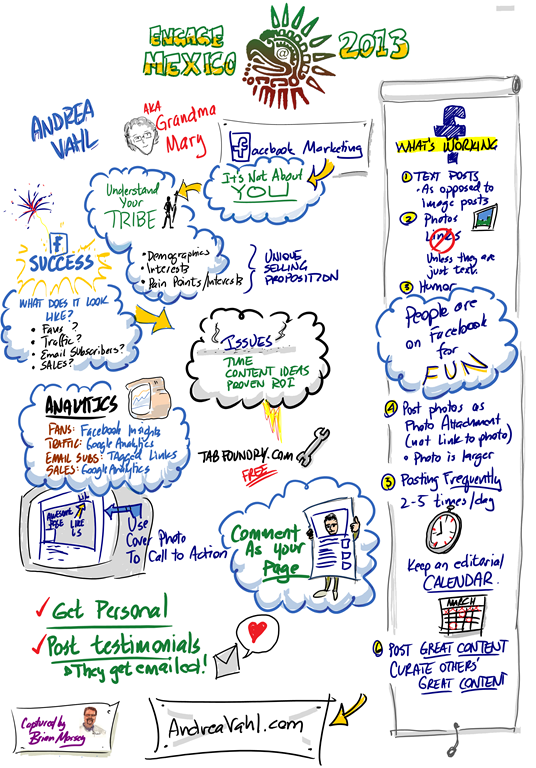 ENGAGE
MEXICO
@
2013
ANDREA
VAHL
AKA
Grandma
Mary
Facebook Marketing
It's Not About
YOU
Understand
Your
TRIBE
• Demographics
• Interests
• Pain Points/Interests
UNIQUE
SELLING
PROPOSITION
f
SUCCESS
WHAT DOES IT LOOK
LIKE?
• Favs ?
• Traffic?
• Email Subscribers?
• SALES?
ISSUES
TIME
CONTENT IDEAS
PROVEN ROI
ANALYTICS
FANS: Facebook Insights
TRAFFIC: Google Analytics
EMAIL SUBS: Tagged Links
SALES: Google Analytics
TABFOUNDRY.com
FREE
AWESOME
LIKE
US
Use
Cover Photo
To Call to Action
Comment
As Your
Page
✓ Get Personal
✓ Post testimonials
They get emailed!
Captured by
Brian Morsey
AndreaVahl.com
f
WHAT'S WORKING
1 TEXT POSTS
• As opposed to
image posts
2 Photos
Links
Unless they are
just text.
3 Humor
People are
on Facebook
for
FUN
4 Post photos as
Photo Attachment
(not Link to photo)
• Photo is larger
5 Posting Frequently
2-5 times/day
Keep an editorial
CALENDAR
MARCH
6 POST GREAT CONTENT
CURATE OTHERS'
GREAT CONTENT